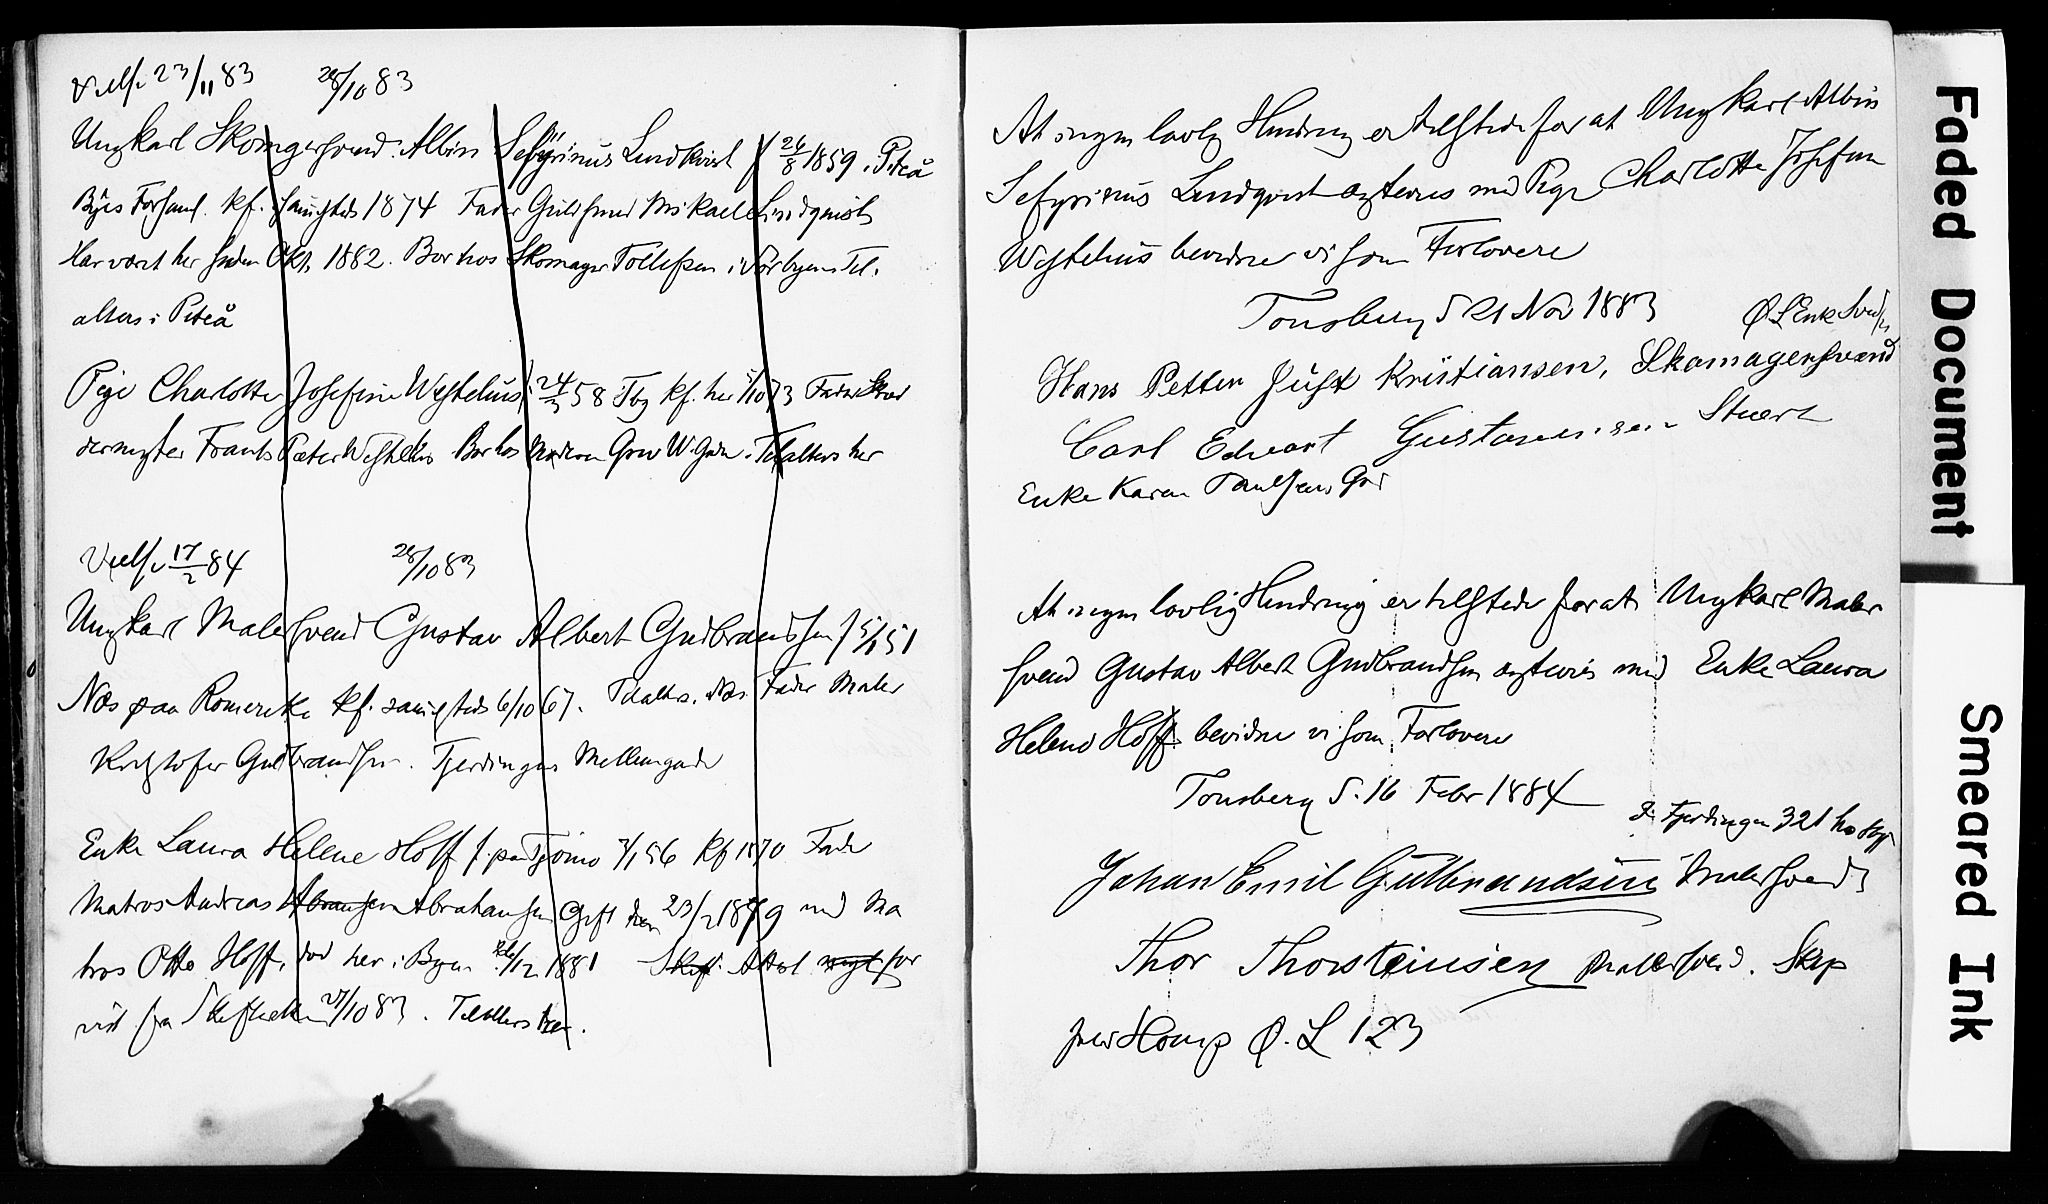 Vielse 23/11 83 28/10 83
Ungkarl Skomagersvend Albin Sefyrinus Lindkvist f 26/8 1859 i Piteå
Byes Forsaml. kf. samsteds 1874 Fader Guldsmed Mikael Lindquist
Har været her siden Okt 1882. Bor hos Skomager Tollefsen i Nørbyen Til.
alters i Piteå
Pige Charlotte Josefine Westelius f. 24/3 58 i Tbg kf. her 5/10 73 Fader Skræ
dermester Frants Peter Westelius Bor hos Moderen Grev W. Gade. Tilalters her
Vielse 17/2 84 28/10 83
Ungkarl Malersvend Gustav Albert Gudbrandsen f 5/1 51
Næs paa Romerike kf. samsteds 6/10 67. Tilalters. Næs Fader Maler
Kristofer Gudbrandsen. Fjerdingen Mellemgade
Enke Laura Helene Hoff f. paa Tjømø 7/1 56 kf 1870 Fader
Matros Andreas Abrausen Abrahamsen Gift her 23/2 1879 med Ma
tros Otto Hoff, død her i Byen 26/12 1881 Skift. Attest for
vist fra Skifteretten 27/10 83. Tilalters her.
At ingen lovlig Hindring er tilstede for at Ungkarl Albin
Sefyrinus Lindqvist ægtevies med Pige Charlotte Josefine
Westelius bevidne vi som Forlovere
Tønsberg d 21 Nov 1883 Ø L Enke
Hans Petter Just Kristiansen, Skomagersvend
Carl Edvart Gustavensen Stuert
Enke Karen Paulsens Går
At ingen lovlig Hindring er tilstede for at Ungkarl Maler
svend Gustav Albert Gudbrandsen ægtevies med Enke Laura
Helene Hoff bevidne vi som Forlovere
Tønsberg d. 16 Febr 1884
Fjerdingen 321 hos
Johan Emil Gulbrandsen Malersvend
Thor Thorsteinsen Malersvend. Skip
Ø. L 123
Faded Document
Smeared Ink